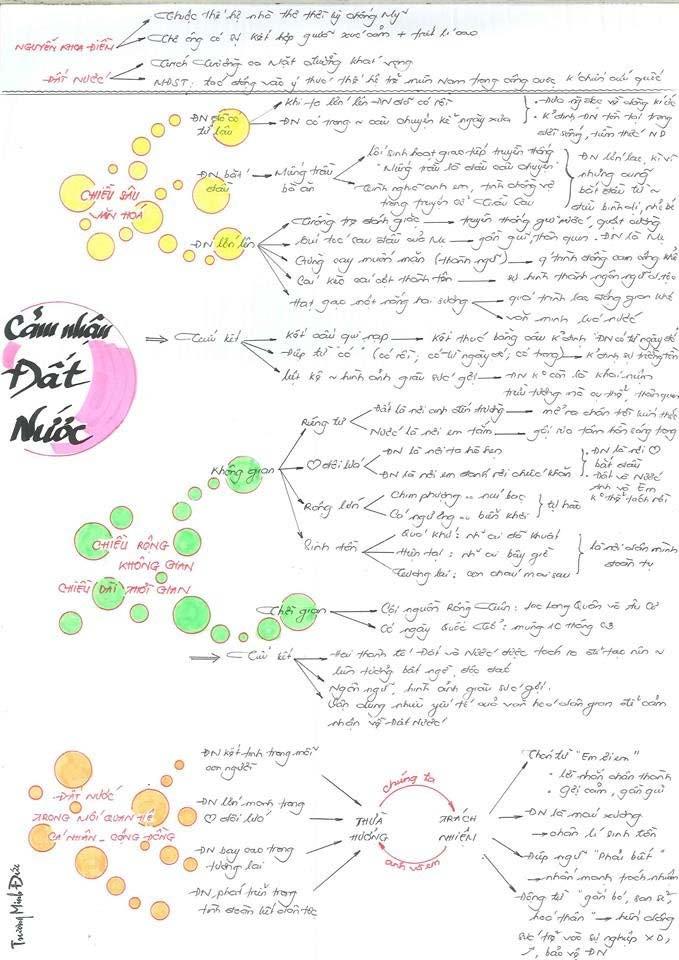 NGUYỄN KHOA ĐIỀM
Thuộc thế hệ nhà thơ thời kỳ chống Mỹ
Thơ ông có sự kết hợp giữa xúc cảm + triết lí
ĐẤT NƯỚC
Trích Trường ca Mặt đường khát vọng
MĐST: tác động vào ý thức thế hệ trẻ miền Nam trong công cuộc k'chiến cứu quốc
Cảm nhận
Đất
Nước
CHIỀU SÂU
VĂN HOÁ
ĐN đã có
từ lâu
Khi ta lớn lên ĐN đã có rồi
ĐN có trong ~ câu chuyện kể ngày xưa
K'định ĐN tồn tại trong
đời sống, tiềm thức ND
ĐN bắt
đầu
Miếng trầu
bà ăn
Lối sinh hoạt giao tiếp truyền thống
"Miếng trầu là đầu câu chuyện"
Tình nghĩa anh em, tình chồng vợ
trong truyện cổ Trầu Cau
ĐN lớn lao, kì vĩ
nhưng cũng
bắt đầu từ ~
điều bình dị, nhỏ bé
ĐN lớn lên
Trồng tre đánh giặc → truyền thống giữ nước, quật cường
Búi tóc sau đầu của Mẹ → gần gũi thân quen. ĐN là Mẹ
Gừng cay muối mặn (thành ngữ)
Cái kèo cái cột thành tên → sự hình thành ngôn ngữ d.tộc
Hạt gạo một nắng hai sương → quá trình lao động gian khổ
văn minh lúa nước
⇒ Tiểu kết
Kết cấu qui nạp → Kết thúc bằng câu k'định "ĐN có từ ngày đó"
Điệp từ "có" (có rồi; có từ ngày đó; có trong) → k'định sự trường tồn
Liệt kê ~ hình ảnh giàu sức gợi → ĐN ko còn là khái niệm
trừu tượng mà cụ thể, thân quen
CHIỀU RỘNG
KHÔNG GIAN
CHIỀU DÀI THỜI GIAN
Không gian
Riêng tư
Đất là nơi anh đến trường → mở ra chân trời kiến thức
Nước là nơi em tắm
♡ đôi lứa
ĐN là nơi ta hò hẹn
ĐN là nơi em đánh rơi chiếc khăn
ĐN là nơi ♡
bắt đầu
Đất và Nước
Anh và Em
ko thể tách rời
Rộng lớn
Chim phượng .. núi bạc
Cá ngư ông .. biển khơi
tự hào
Sinh tồn
Quá khứ: những ai đã khuất
Hiện tại: những ai bây giờ
Tương lai: con cháu mai sau
là nơi dân mình
đoàn tụ
Thời gian
Cội nguồn Rồng Tiên: Lạc Long Quân và Âu Cơ
Có ngày Quốc Tổ: mùng 10 tháng 03
⇒ Tiểu kết
Hai thành tố Đất và Nước được tách ra để tạo nên ~
liên tưởng bất ngờ, độc đáo
Ngôn ngữ, hình ảnh giàu sức gợi.
Vận dụng nhiều yếu tố của văn hoá dân gian để cảm
nhận về Đất Nước
ĐẤT NƯỚC
TRONG MỐI QUAN HỆ
CÁ NHÂN - CỘNG ĐỒNG
ĐN kết tinh trong mỗi
con người
ĐN lớn mạnh trong
♡ đôi lứa
ĐN bay cao trong
tương lai
ĐN phát triển trong
tình đoàn kết dân tộc
THỪA
HƯỞNG
chúng ta
anh và em
TRÁCH
NHIỆM
Thán từ "Em ơi em"
• lời nhắn chân thành
• gợi cảm, gần gũi
ĐN là máu xương
→ chân lí sinh tồn
Điệp ngữ "Phải biết"
→ nhấn mạnh trách nhiệm
Động từ "gắn bó, san sẻ,
hoá thân"
sức trẻ vào sự nghiệp XD,
bảo vệ ĐN
Trương Minh Đức